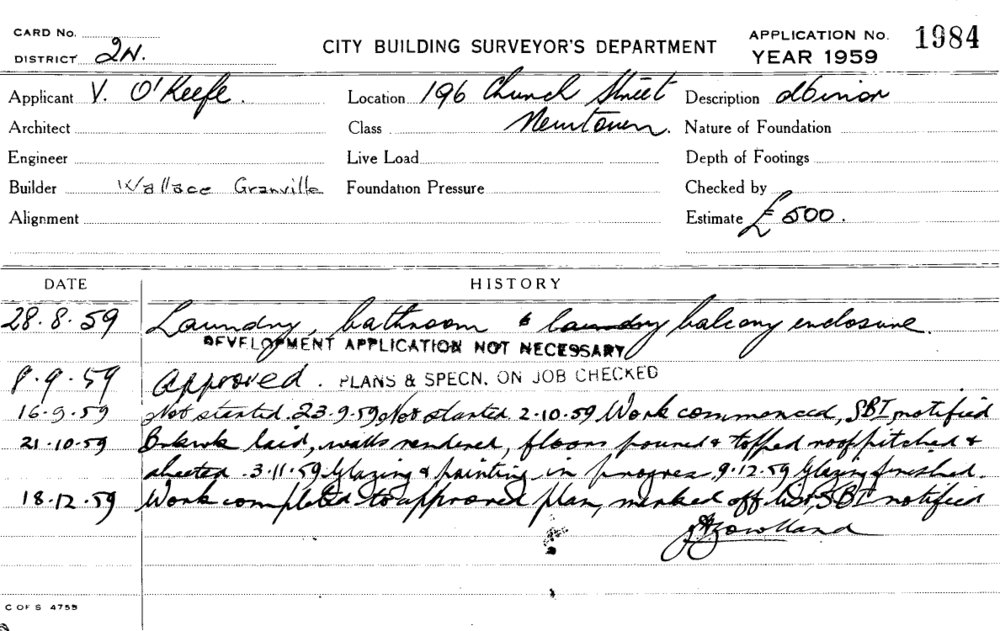 CARD No.
DISTRICT 2N.
CITY BUILDING SURVEYOR'S DEPARTMENT
APPLICATION No. 1984
YEAR 1959
Applicant V. O'Keefe. Location 196 Church Street Description Minor
Architect Class Newtown. Nature of Foundation
Engineer Live Load Depth of Footings
Builder Wallace Granville Foundation Pressure Checked by
Alignment Estimate £500.
DATE HISTORY
28.8.59 Laundry, bathroom & laundry balcony enclosure.
DEVELOPMENT APPLICATION NOT NECESSARY
8.9.59 Approved. PLANS & SPECN. ON JOB CHECKED
16.9.59 Not started. 23.9.59 Not started 2.10.59 Work commenced, SBI notified
21.10.59 Brkwk laid, walls rendered, floors poured & topped roof pitched &
sheeted. 3.11.59 Glazing & painting in progress, 9.12.59 Glazing finished.
18.12.59 Work completed to approved plan, marked off list, SBI notified
C OF S 4755